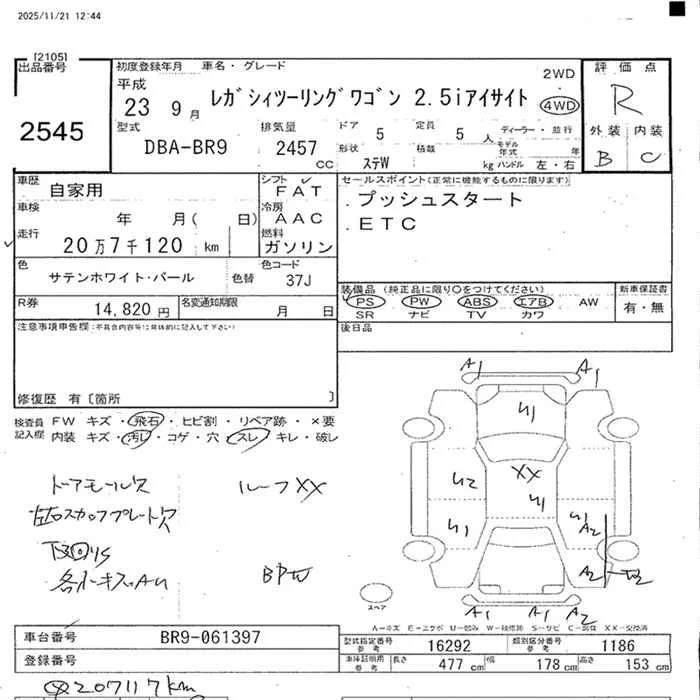 2025/11/21 12:44
[2105]
出品番号
2545
初度登録年月 車名・グレード
平成
23 9月
レガシィツーリングワゴン 2.5iアイサイト
2WD
4WD
評価点
R
外装 内装
B C
型式
DBA-BR9
排気量
2457 CC
ドア 5
定員 5 人
形状 ステW
積載 kg
ディーラー・並行
モデル年式 年
ハンドル 左・右
車歴
自家用
シフト
FAT
車検 年 月( 日)
冷房
AAC
走行
20万7千120 km
燃料
ガソリン
セールスポイント(正常に機能するものに限ります)
.プッシュスタート
.ETC
色
サテンホワイト・パール
色替
色コード
37J
R券
14,820 円
名変通知期限
月 日
装備品 (純正品に限り○をつけてください)
PS PW ABS エアB AW
SR ナビ TV カワ
新車保証書
有・無
注意事項申告欄:(不具合内容等は具体的に記入して下さい)
後日品
修復歴 有〔箇所 〕
検査員記入欄
FW キズ・飛石・ヒビ割・リペア跡・×要
内装 キズ・汚レ・コゲ・穴・スレ・キレ・破レ
ドアモール欠
ルーフXX
左右スカッフプレート欠
BPW
A1 A1
U1
U2 XX
U1 U1 U1
A2
A2
A1 A1 A2
スペア
A-キズ E-エクボ U-凹み W-板修跡 S-サビ C-腐食 XX-交換済
車台番号 BR9-061397
登録番号
型式指定番号 参考 16292
類別区分番号 参考 1186
車庫証明用 参考 長さ 477 cm 幅 178 cm 高さ 153 cm
207117km